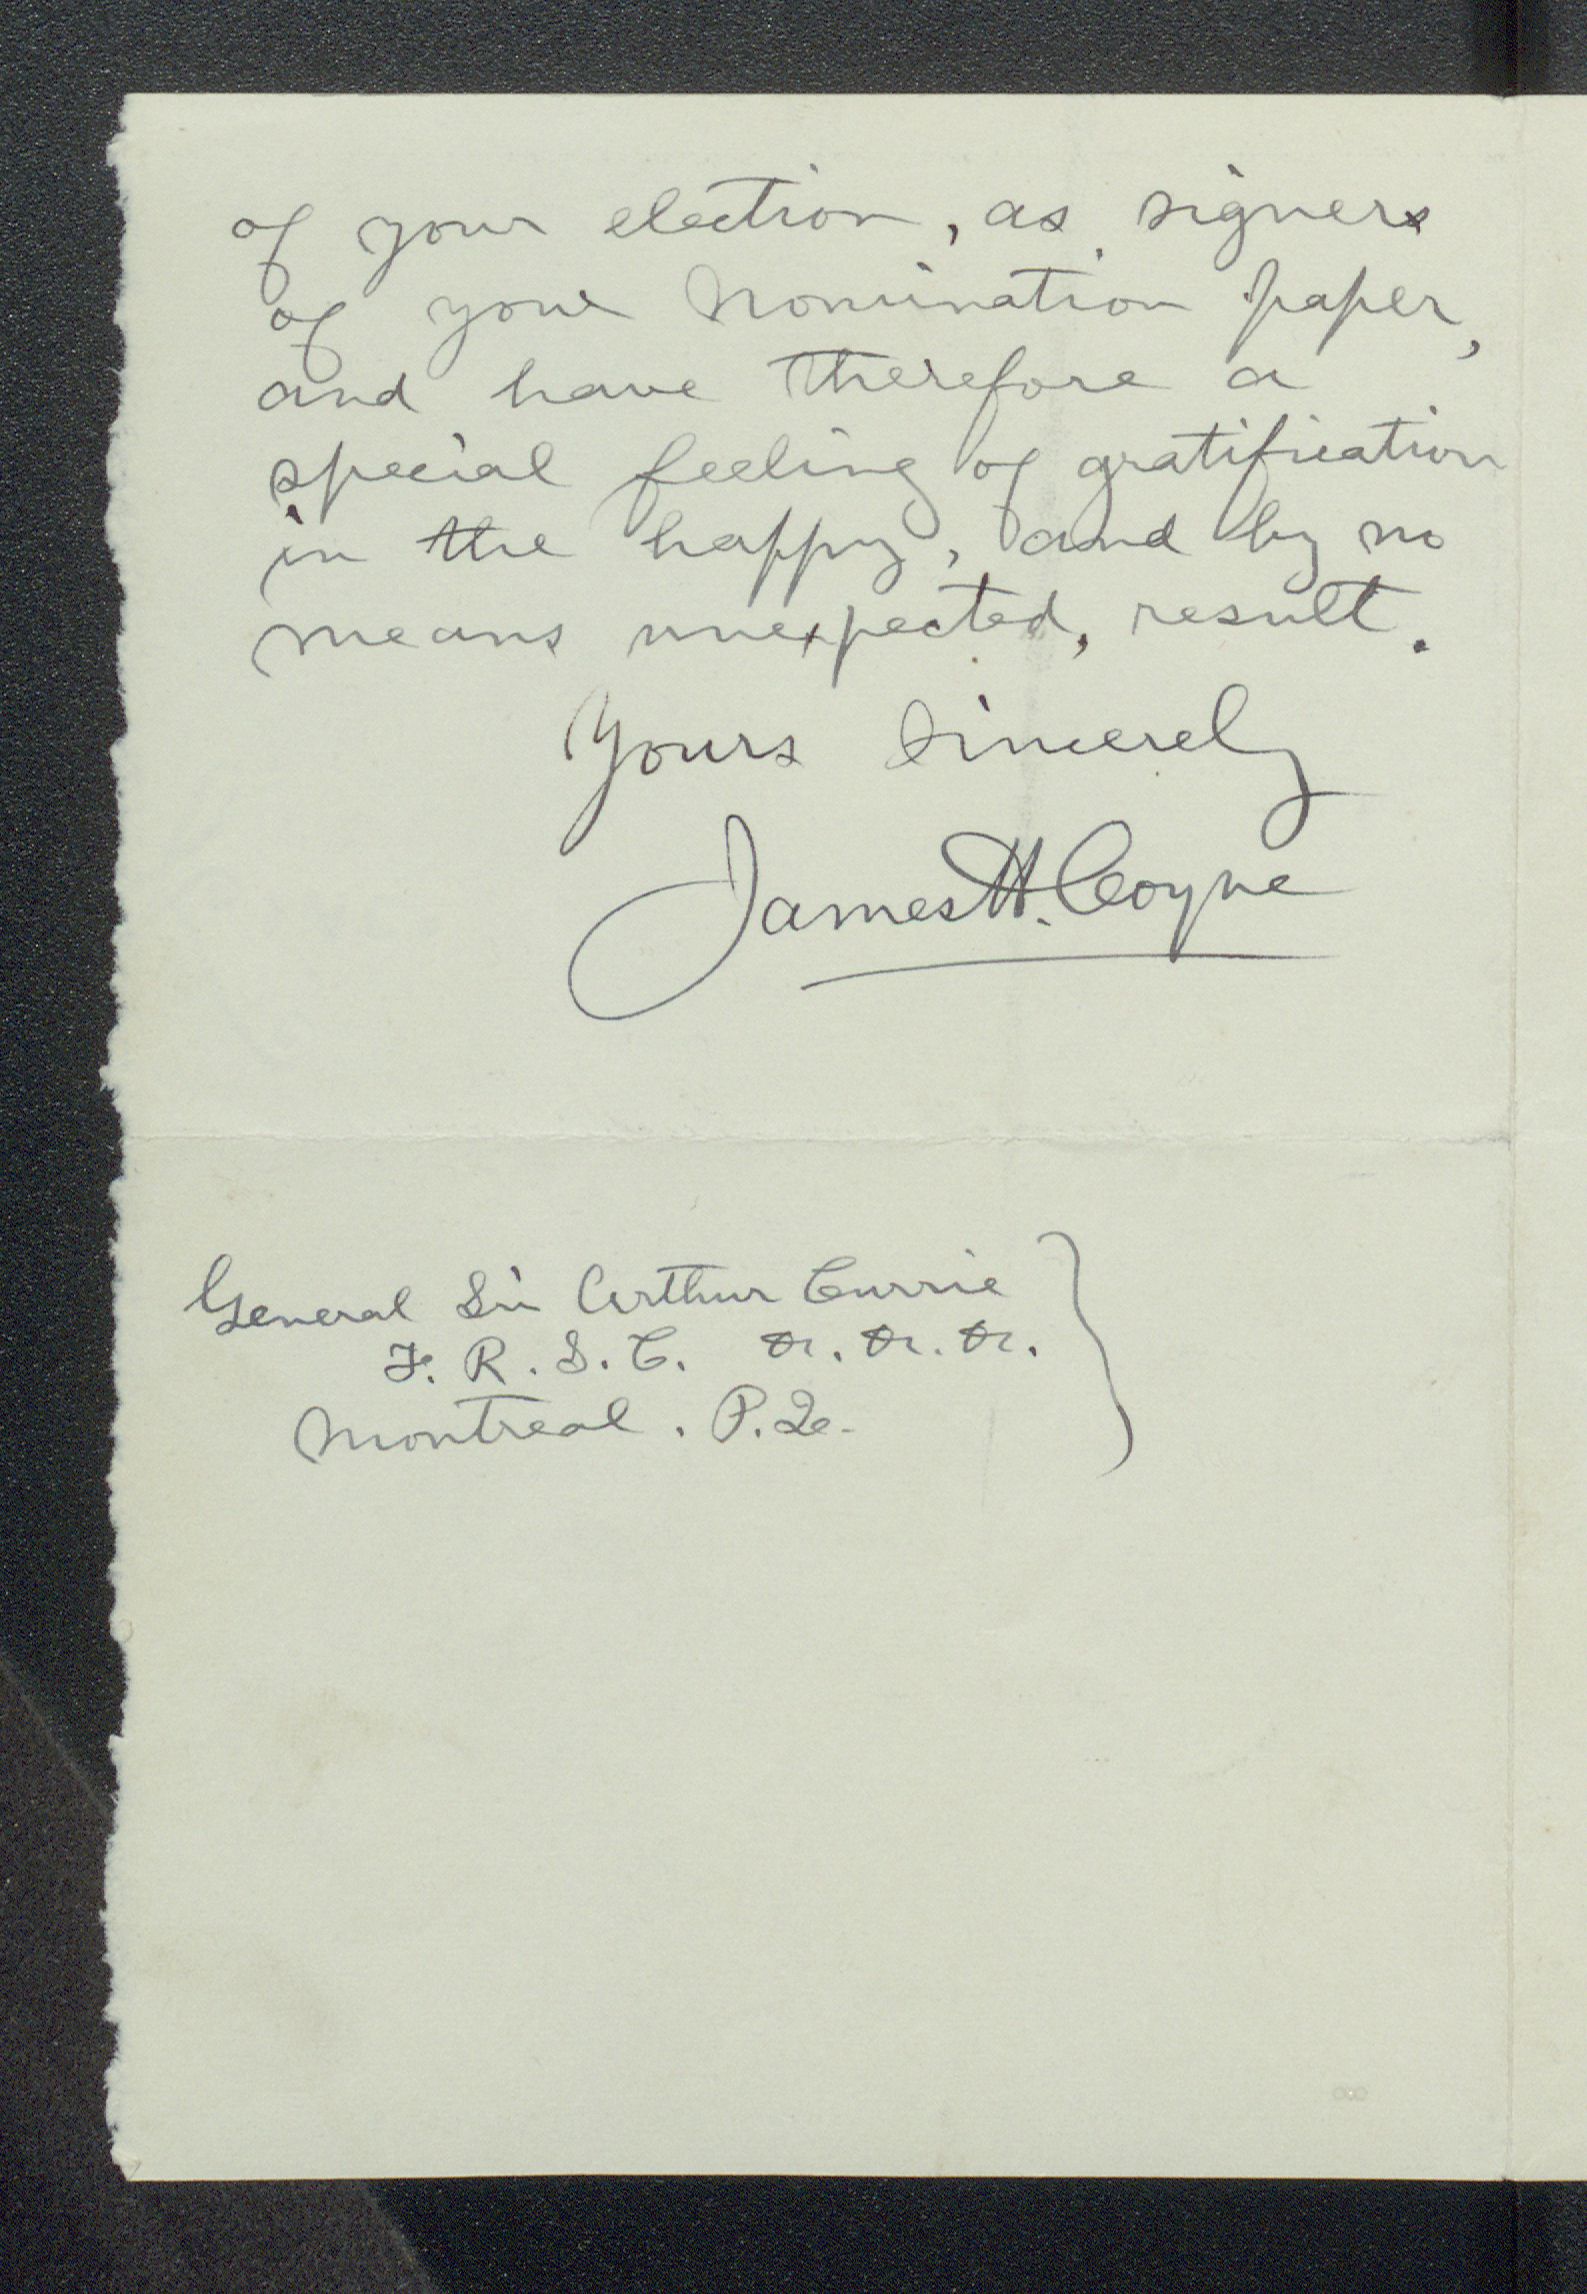 of your election, as signers
of your nomination paper,
and have therefore a
special feeling of gratification
in the happy, and by no
means unexpected, result.
Yours sincerely
James H. Coyne
General Sir Arthur Currie
F. R. S. C.
Montreal. P.Q.